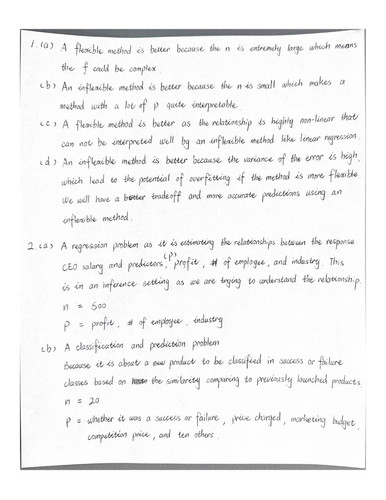 1. (a) A flexible method is better because the n is extremely large which means
the f could be complex.
(b) An inflexible method is better because the n is small which makes a
method with a lot of p quite interpretable.
(c) A flexible method is better as the relationship is highly non-linear that
can not be interpreted well by an inflexible method like linear regression.
(d) An inflexible method is better because the variance of the error is high,
which lead to the potential of overfitting if the method is more flexible
We will have a better tradeoff and more accurate predictions using an
inflexible method.
2. (a) A regression problem as it is estimating the relationships between the response
CEO salary and predictors (p), profit, # of employee, and industry. This
is in an inference setting as we are trying to understand the relationship.
n = 500
p = profit, # of employee, industry
(b) A classification and prediction problem
Because it is about a new product to be classified in success or failure
classes based on the similarity comparing to previously launched products.
n = 20
p = whether it was a success or failure, price charged, marketing budget,
competition price, and ten others.